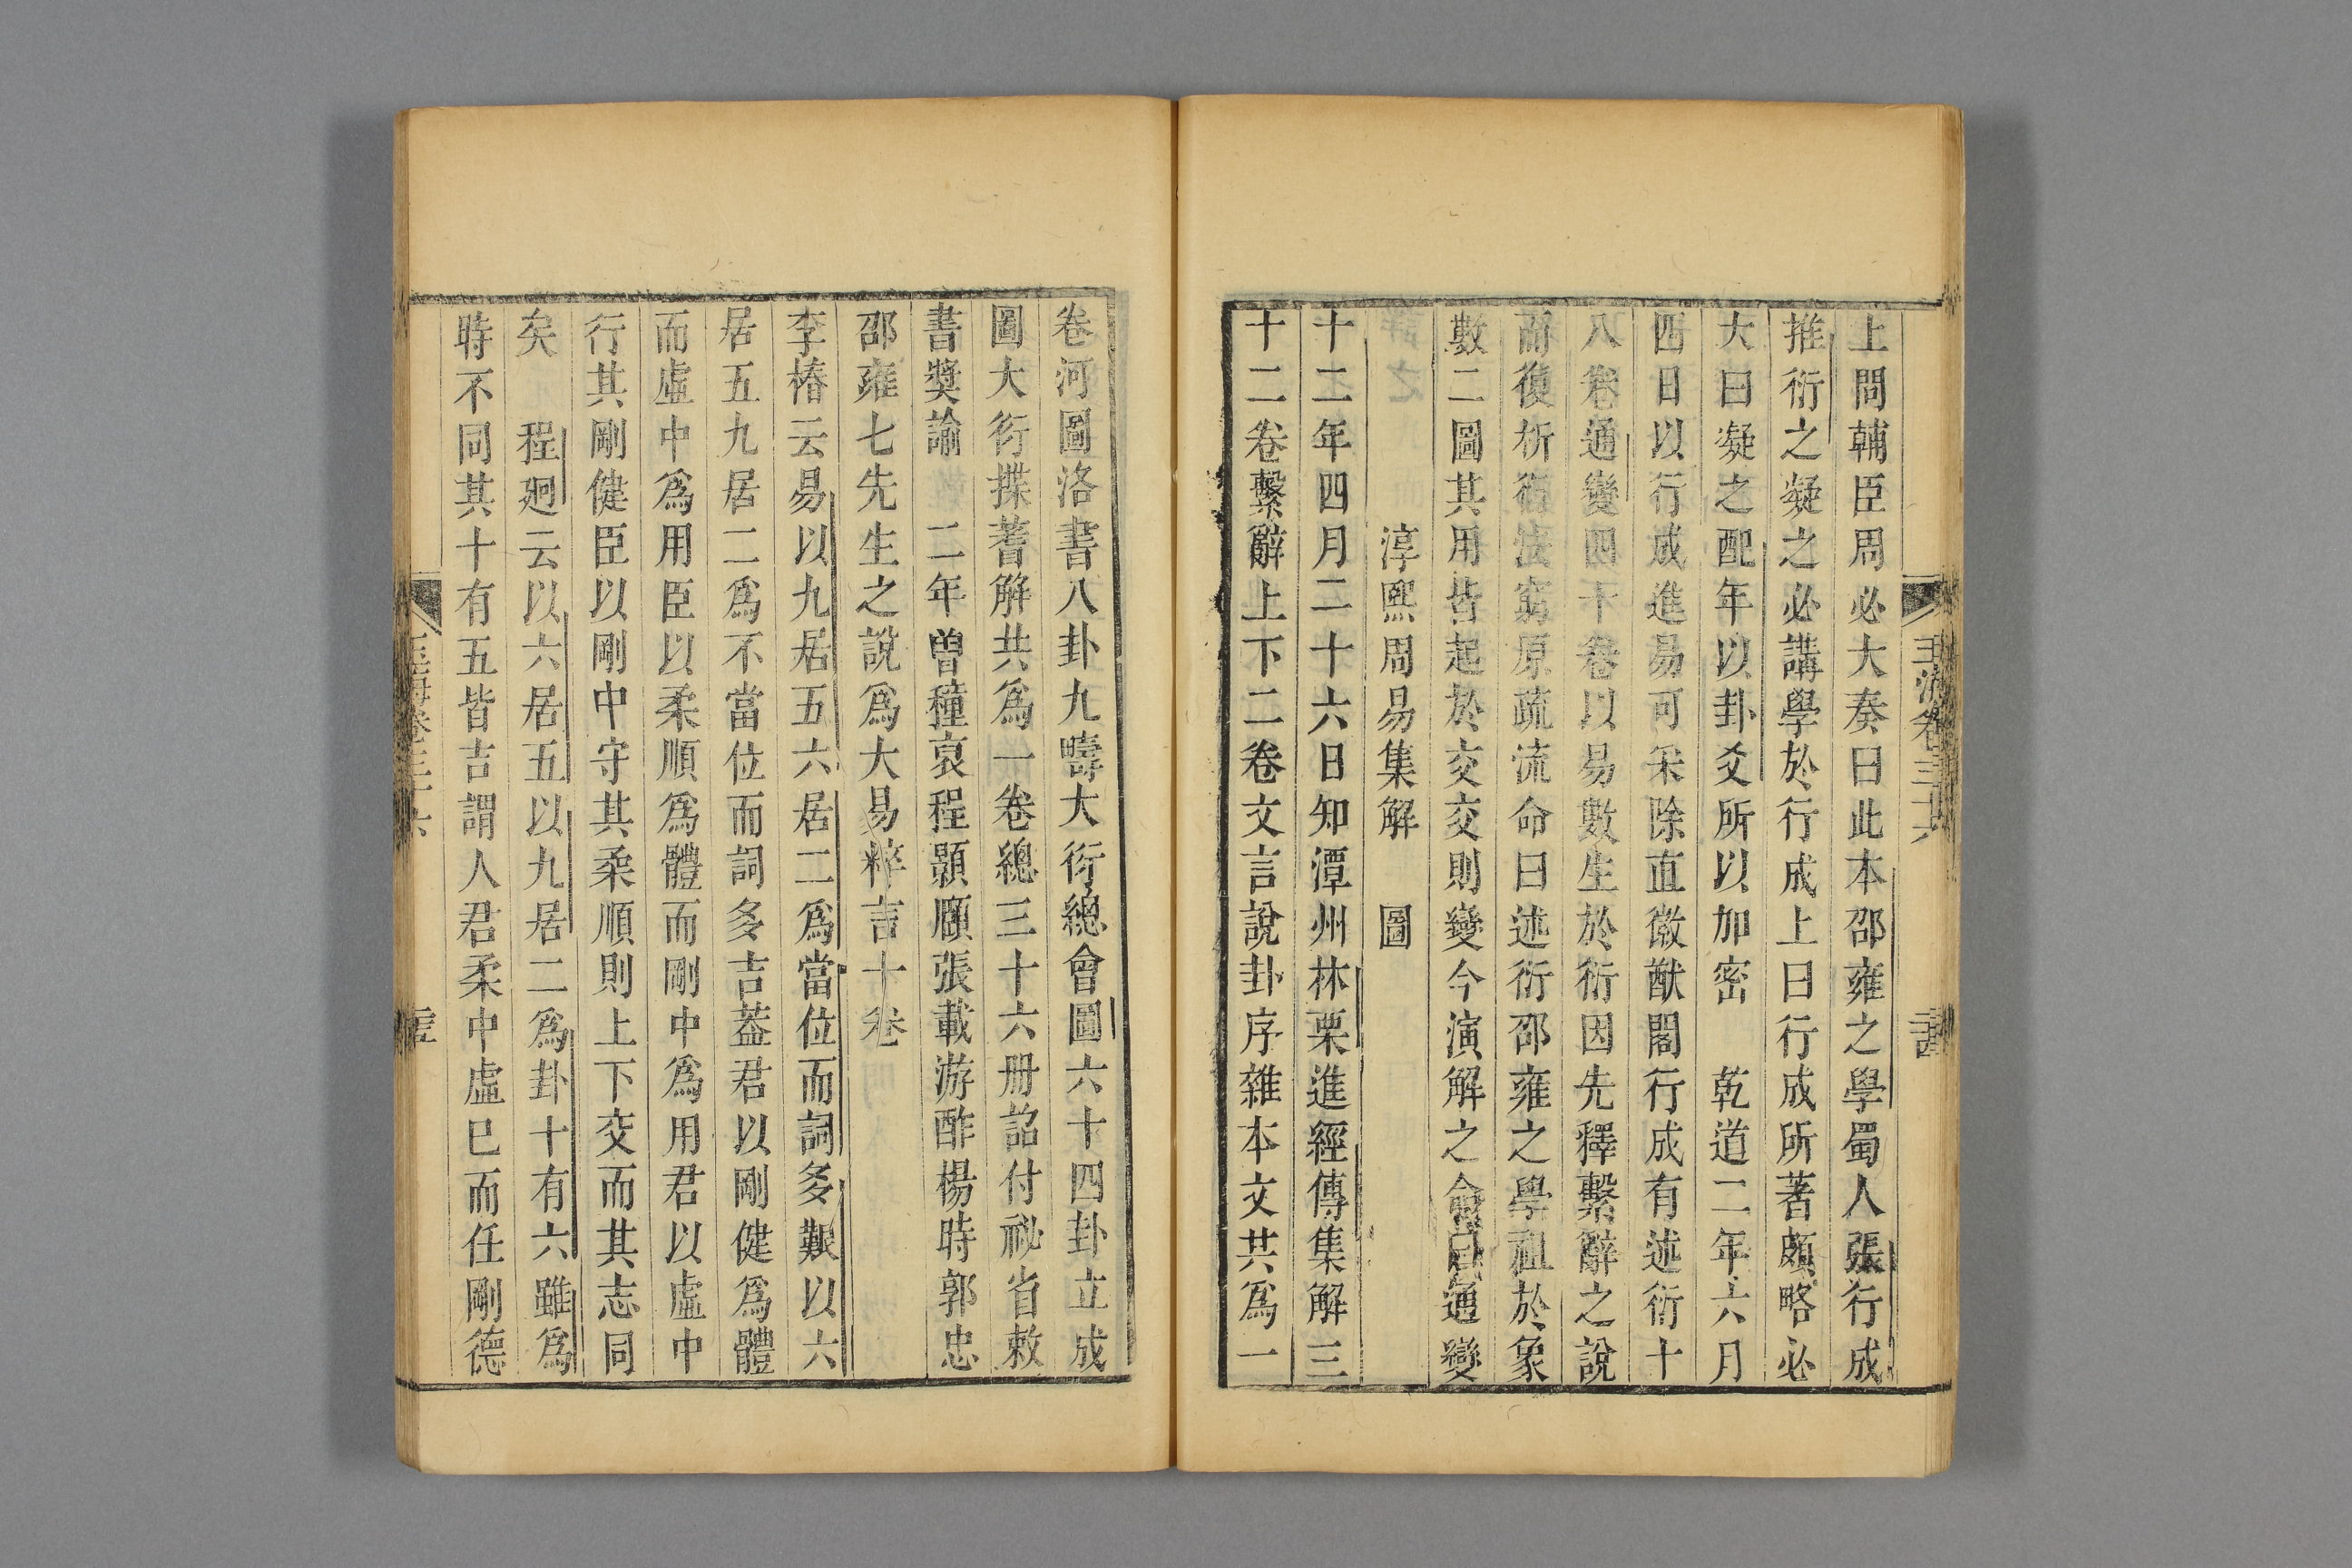 上問輔臣周必大奏曰此本邵雍之學蜀人張行成
推衍之凝之必講學於行成上曰行成所著頗略必
大曰凝之配年以卦爻所以加密　乾道二年六月
四日以行成進易可采除直徽猷閣行成有述衍十
八卷通變四十卷以易數生於衍因先釋繫辭之說
而復析衍法窮原疏流命曰述衍邵雍之學祖於象
數二圖其用皆起於交交則變今演解之命曰通變
淳熙周易集解　圖
十二年四月二十六日知潭州林栗進經傳集解三
十二卷繫辭上下二卷文言說卦序雜本文共為一
玉海卷三十六
卷河圖洛書八卦九疇大衍總會圖六十四卦立成
圖大衍揲蓍解共為一卷總三十六冊詔付祕省敕
書獎諭　二年曽穜裒程顥頤張載游酢楊時郭忠
邵雍七先生之說為大易粹言十卷
李椿云易以九居五六居二為當位而詞多艱以六
居五九居二為不當位而詞多吉葢君以剛健為體
而虛中為用臣以柔順為體而剛中為用君以虛中
行其剛健臣以剛中守其柔順則上下交而其志同
矣　程迥云以六居五以九居二為卦十有六雖為
時不同其十有五皆吉謂人君柔中虛已而任剛德
玉海卷三十六